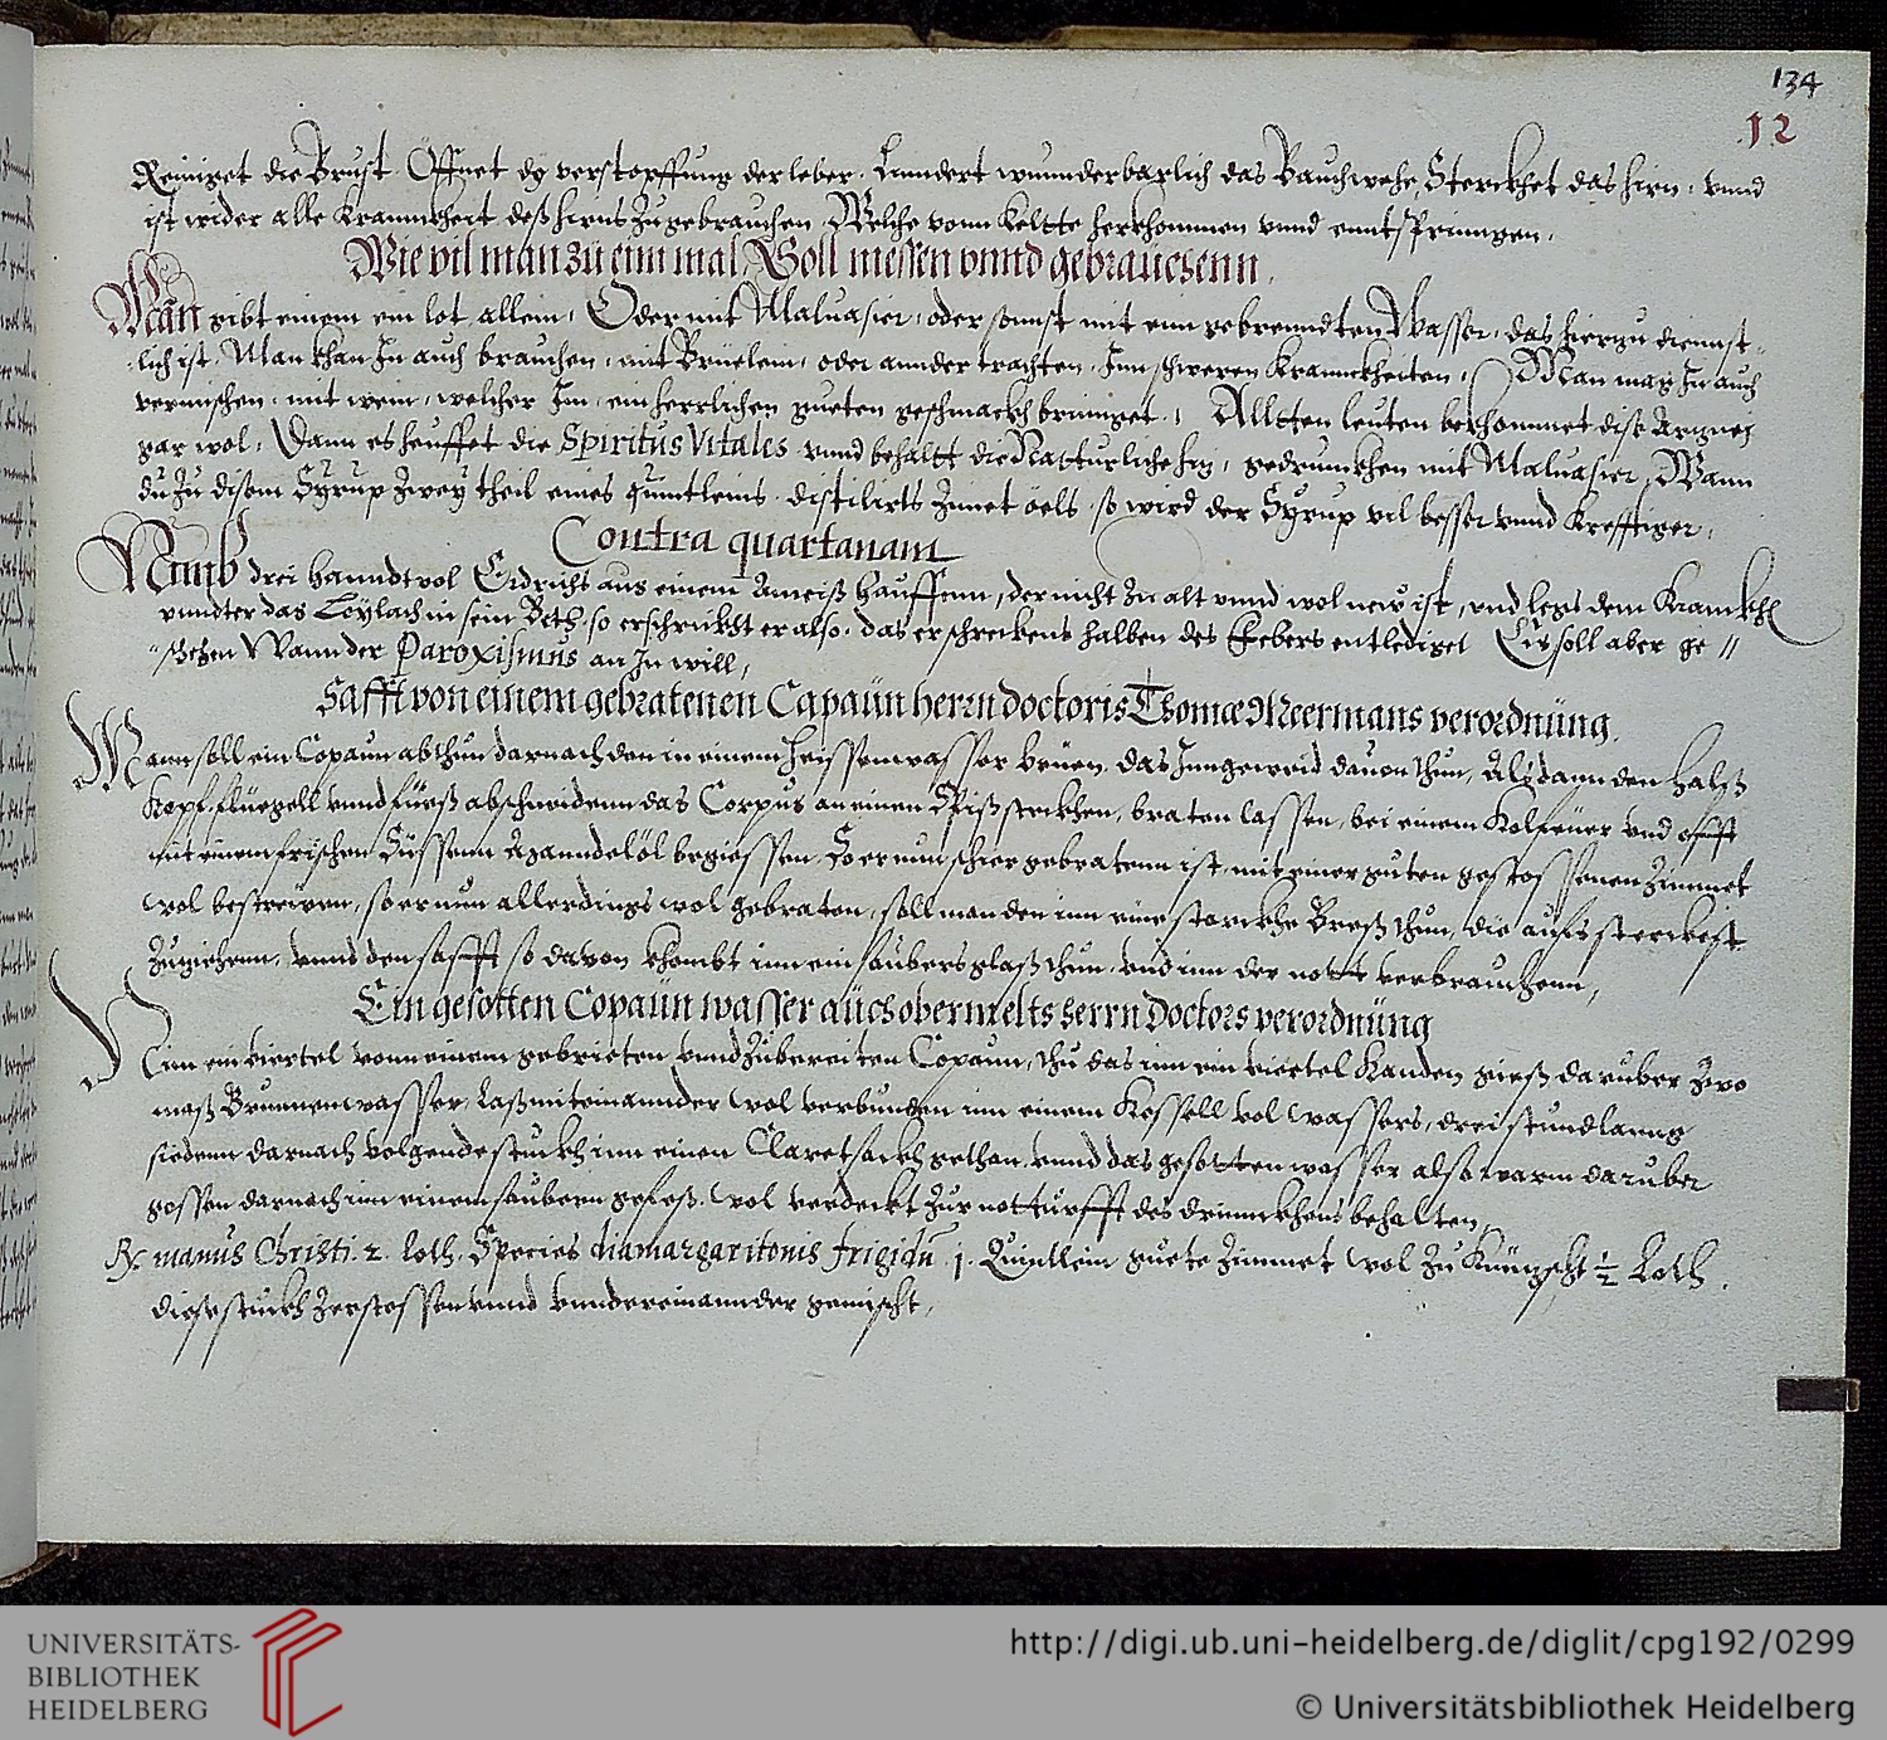 134
12
Reiniget die Brust. Öffnet dy verstopffung der leber. Linndert wunnderbarlich das Bauchwehe, Sterckhet das hirn, vnnd
ist wider alle Krannckheit deß hirns zugebrauchen Welche vonn Keltte herkhommen vnnd enntsprinngen,
Wie vil man zu einn mal, Soll niessen vnnd gebrauchenn,
Man gibt einem ein lot allein, Oder mit Maluasier, oder sonnst mit eim gebrenndten Wasser, das hierzu diennst„
lich ist. Man khan In auch brauchen, mit Brüelein, oder annder trachten, Inn schweren Krannckheiten, Man mag In auch
vermischen, mit wein, welcher Im, ein herrlichen gueten geschmackh brinnget, Alltten leuten bekhommet dise Artznej
gar wol, Dann es heuffet die Spiritus Vitales vnnd behaltt die Natturliche hitz, gedrunckhen mit Maluasier, Wann
du Zu disem Syrup zwey theil eines quintleins distilirts Zimet öels, so wird der Syrup vil besser vnnd Krefftiger,
Contra quartanam
Nimb drei hanndtvol Erdrichs aus einem Ameiß hauffenn, der nicht zu alt vnnd wol new ist, vnd legs dem Kranckh
vnndter das Leylach in sein Beth, so erschrickht er also, das er schreckens halben des Febers entlediget Eis soll aber ge //
„schehen Wann der Paroxismus an In will,
Safft von einem gebratenen Capaun herrn doctoris Thomæ Meermans verordnung,
Mann soll ein Copaun abthun darnach den in einem heissen wasser brüen, das Ingeweid dauon thun, Alsdann den halß
Kopf, flüegell vnnd füeß abschneidenn das Corpus an einen Spiß steckhen, braten lassen, bei einem Kolfeuer vnd offt
mit einem frischen Süssenn Manndelöl begiessen, So er nun schier gebratenn ist, mit einer guten gestossenen Zimmet
wol bestreiwen, so er nun allerdings wol gebraten, soll man den inn eine starckhe Preß thun, die aufs sterckest
Zuziehenn, vnnd den safft so davon khombt inn ein saubers glaß thun, vnd inn der nott verbrauchenn,
Ein gesotten Copaun wasser auch obermelts herrn Doctors verordnung
Nim ein viertel vonn einem gebrieten vnnd Zubereiten Copaun, thu das inn ein viertel Kanden, gieß daruber zwo
maß Brunnenwasser, Laß miteinannder wol verbunden inn einem Kessell vol wassers, drei stund lanng
siedenn darnach volgende stuckh inn einen Claretsackh gethan, vnnd das gesotten wasser also warm daruber
gossen darnach inn einem saubern gefeß, wol verdeckt zur notturfft des drinnckhens behalten,
℞. manus Christi. 2. loth. Species diamargaritonis frigidū j. Quintlein guete Zimmet wol Zu Knüescht ½ Loth.
diese stuckh Zerstossen vnnd vnndereinannder gemischt,
UNIVERSITÄTS-
BIBLIOTHEK
HEIDELBERG
http://digi.ub.uni-heidelberg.de/diglit/cpg192/0299
© Universitätsbibliothek Heidelberg